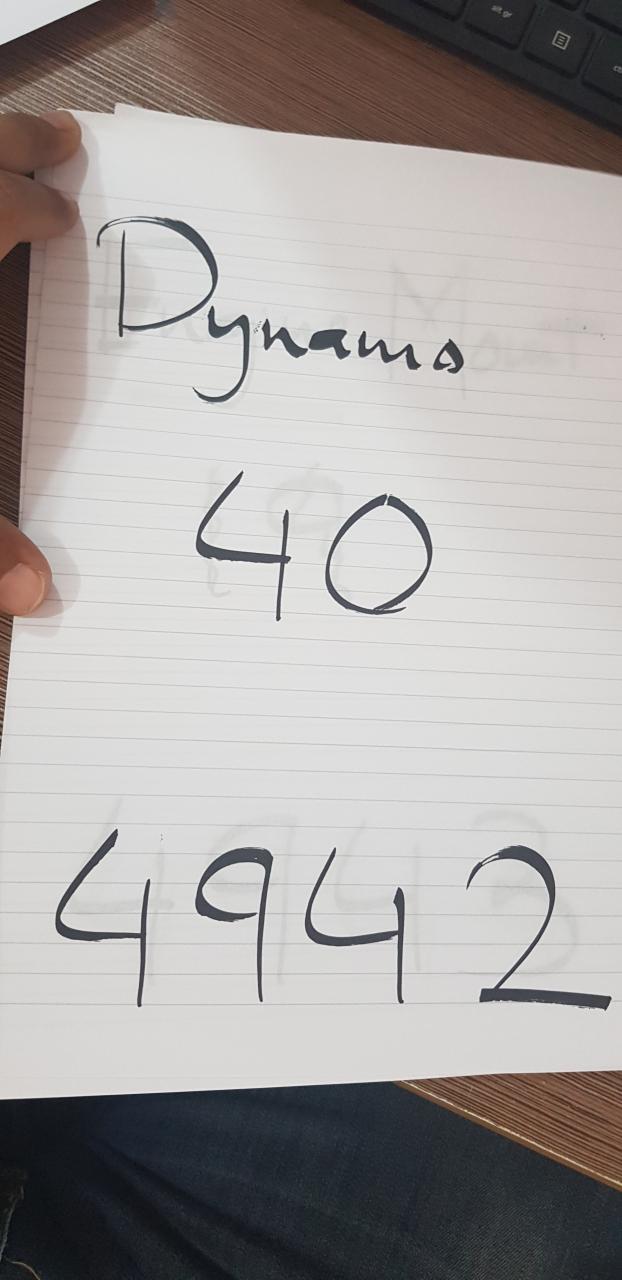 Dynamo
40
4942